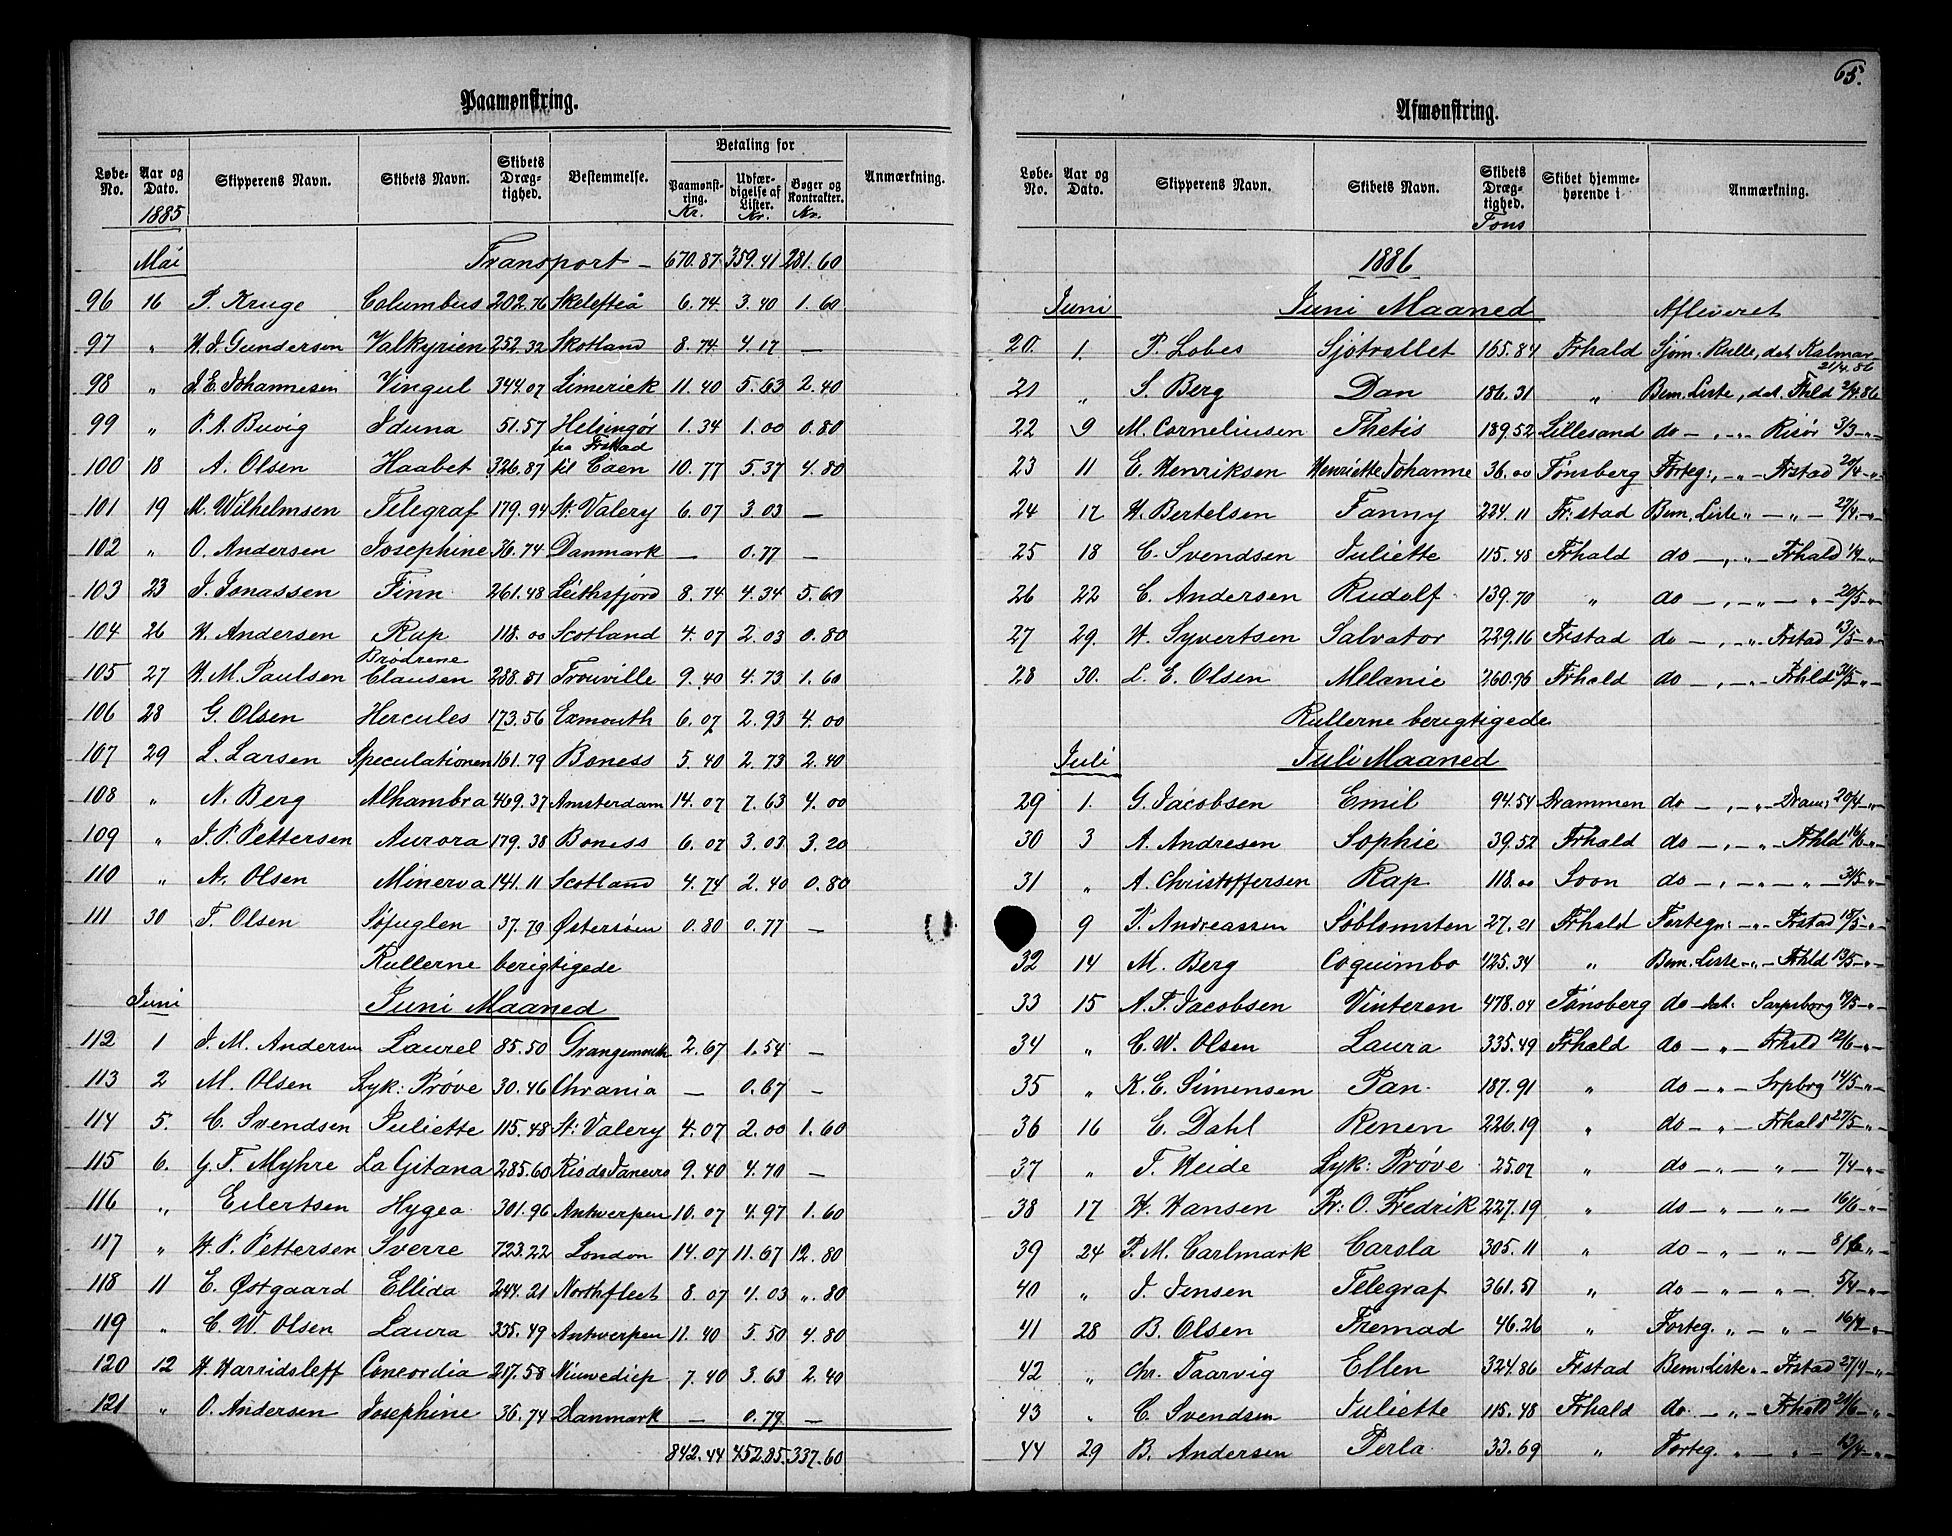 Paamønstring.
Løbe-No. | Aar og Dato. | Skipperens Navn. | Skibets Navn. | Skibets Dræg-tighed. | Bestemmelse. | Betaling for | Paamønst-ring. Kr. | Udfær-digelse af Lister. Kr. | Bøger og Kontrakter. Kr. | Anmærkning.
1885
Mai | Transport - | 670.87 | 359.41 | 281.60
96 | 16 | P. Kruge | Columbus | 202.76 | Skelefteå | 6.74 | 3.40 | 1.60
97 | " | H. J. Gundersen | Valkyrien | 252.32 | Skotland | 8.74 | 4.17 | —
98 | " | J. E. Johannesen | Vingul | 344.07 | Limerick | 11.40 | 5.63 | 2.40
99 | " | P. A. Buvig | Iduna | 51.57 | Helsingør | 1.34 | 1.00 | 0.80
100 | 18 | A. Olsen | Haabet | 326.87 | fra Frstad til Caen | 10.77 | 5.37 | 4.80
101 | 19 | M. Wilhelmsen | Telegraf | 179.94 | St. Valery | 6.07 | 3.03 | —
102 | " | O. Andersen | Josephine | 36.74 | Danmark | — | 0.77 | —
103 | 23 | J. Jonassen | Finn | 261.48 | Leithsfjord | 8.74 | 4.34 | 5.60
104 | 26 | H. Andersen | Rap | 118.00 | Scotland | 4.07 | 2.03 | 0.80
105 | 27 | H. M. Paulsen | Brødrene Clausen | 288.81 | Trouville | 9.40 | 4.73 | 1.60
106 | 28 | G. Olsen | Hercules | 173.56 | Exmouth | 6.07 | 2.93 | 4.00
107 | 29 | L. Larsen | Speculationen | 161.79 | Boness | 5.40 | 2.73 | 2.40
108 | " | N. Berg | Alhambra | 469.37 | Amsterdam | 14.07 | 7.63 | 4.00
109 | " | J. P. Pettersen | Aurora | 179.38 | Boness | 6.07 | 3.03 | 3.20
110 | " | A. Olsen | Minerva | 141.11 | Scotland | 4.74 | 2.40 | 0.80
111 | 30 | T. Olsen | Søfuglen | 37.79 | Østersøen | 0.80 | 0.77 | —
Rullerne berigtigede
Juni | Juni Maaned
112 | 1 | J. M. Andersen | Laurel | 85.50 | Grangemouth | 2.67 | 1.54 | —
113 | 2 | M. Olsen | Lyk: Prøve | 30.46 | Chrania | — | 0.67 | —
114 | 5. | C. Svendsen | Juliette | 115.48 | St: Valery | 4.07 | 2.00 | 1.60
115 | 6. | G. T. Myhre | La Gitana | 285.60 | Rio de Janeiro | 9.40 | 4.70 | —
116 | " | Eilertsen | Hygea | 301.96 | Antwerpen | 10.07 | 4.97 | 1.60
117 | " | H. P. Pettersen | Sverre | 723.22 | London | 14.07 | 11.67 | 12.80
118 | 11 | E. Østgaard | Ellida | 244.21 | Northfleet | 8.07 | 4.03 | ".80
119 | " | C. W. Olsen | Laura | 335.49 | Antwerpen | 11.40 | 5.50 | 4.80
120 | 12 | H. Harridsleff | Concordia | 217.58 | Nieuwediep | 7.40 | 3.63 | 2.40
121 | " | O. Andersen | Josephine | 36.74 | Danmark | — | 0.77 | —
842.44 | 452.85 | 337.60
65.
Afmønstring.
Løbe-No. | Aar og Dato. | Skipperens Navn. | Skibets Navn. | Skibets Dræg-tighed. Tons | Skibet hjemme-hørende i | Anmærkning.
1886
Juni | Juni Maaned | Afleveret
20. | 1. | P. Lobes | Sjötrollet | 165.84 | Frhald | Sjöm. Rulle, dat. Kalmar 21/4.86
21 | " | S. Berg | Dan | 186.31 | " | Bem. Liste, dat. Frhld 2/4.86
22 | 9 | M. Corneliusen | Thetis | 189.52 | Lillesand | do — , " - Risør 3/3 - "
23 | 11 | E. Henriksen | Henriette Johanne | 36.00 | Tønsberg | Forteg:, - " - Frstad 20/4 - "
24 | 17 | H. Bertelsen | Fanny | 224.11 | Fr:stad | Bem. Liste " — " — 22/4 - "
25 | 18 | C. Svendsen | Juliette | 115.48 | Frhald | do — , " - Frhald 1/4 - "
26 | 22 | C. Andersen | Rudolf | 139.70 | " | do — , — " — " — 20/5 - "
27 | 29. | H. Syvertsen | Salvator | 229.16 | Frstad | do — , " Frstad 13/5 - "
28 | 30. | L. E. Olsen | Melanie | 260.76 | Frhald | do — , — " - Frhld 31/5 "
Rullerne berigtigede
Juli | Juli Maaned
29 | 1. | G. Jacobsen | Emil | 94.54 | Drammen | do — , — " - Dram: 20/4 - "
30 | 3 | A. Andresen | Sophie | 39.52 | Frhald | do — , — " - Frhld 16/6 - "
31 | " | A. Christoffersen | Rap | 118.00 | Soon | do — , — " — " — 31/5 - "
9 | P. Andreassen | Søblomsten | 27.21 | Frhald | Fortegn: - " - Frstad 18/5 - "
32 | 14 | M. Berg | Coquimbo | 425.34 | " | Bem. Liste - " - Frhld 13/5 - "
33 | 15 | A. F. Jacobsen | Vinteren | 478.04 | Tønsberg | do - dat: Sarpsborg 19/5 - "
34 | " | C. W. Olsen | Laura | 335.49 | Frhald | do — " — Frhald 12/6 - "
35 | " | K. E. Simensen | Pan | 187.91 | " | do — " — Srpbrg 14/5 - "
36 | 16 | E. Dahl | Renen | 226.19 | " | do — " — Frhald 27/5 - "
37 | " | T. Heide | Lyk: Prøve | 25.07 | " | do — " — " — 7/4 - "
38 | 17 | H. Hansen | Pr: O. Fredrik | 227.19 | " | do — " — " — 16/6 - "
39 | 24 | P. M. Carlmark | Carola | 305.11 | " | do — " — " — 8/6 - "
40 | " | J. Jensen | Telegraf | 361.51 | " | do — " — " — 5/4 - "
41 | 28 | B. Olsen | Fremad | 46.26 | " | Forteg. " — " — 16/4 - "
42 | " | Chr. Taarvig | Ellen | 324.86 | Frstad | Bem: Liste " - Frstad 27/4 - "
43 | " | C. Svendsen | Juliette | 115.48 | Frhald | do. — " - Frhald 21/6 - "
44 | 29 | B. Andersen | Perla | 33.69 | " | Forteg. " — " — 13/4 - "